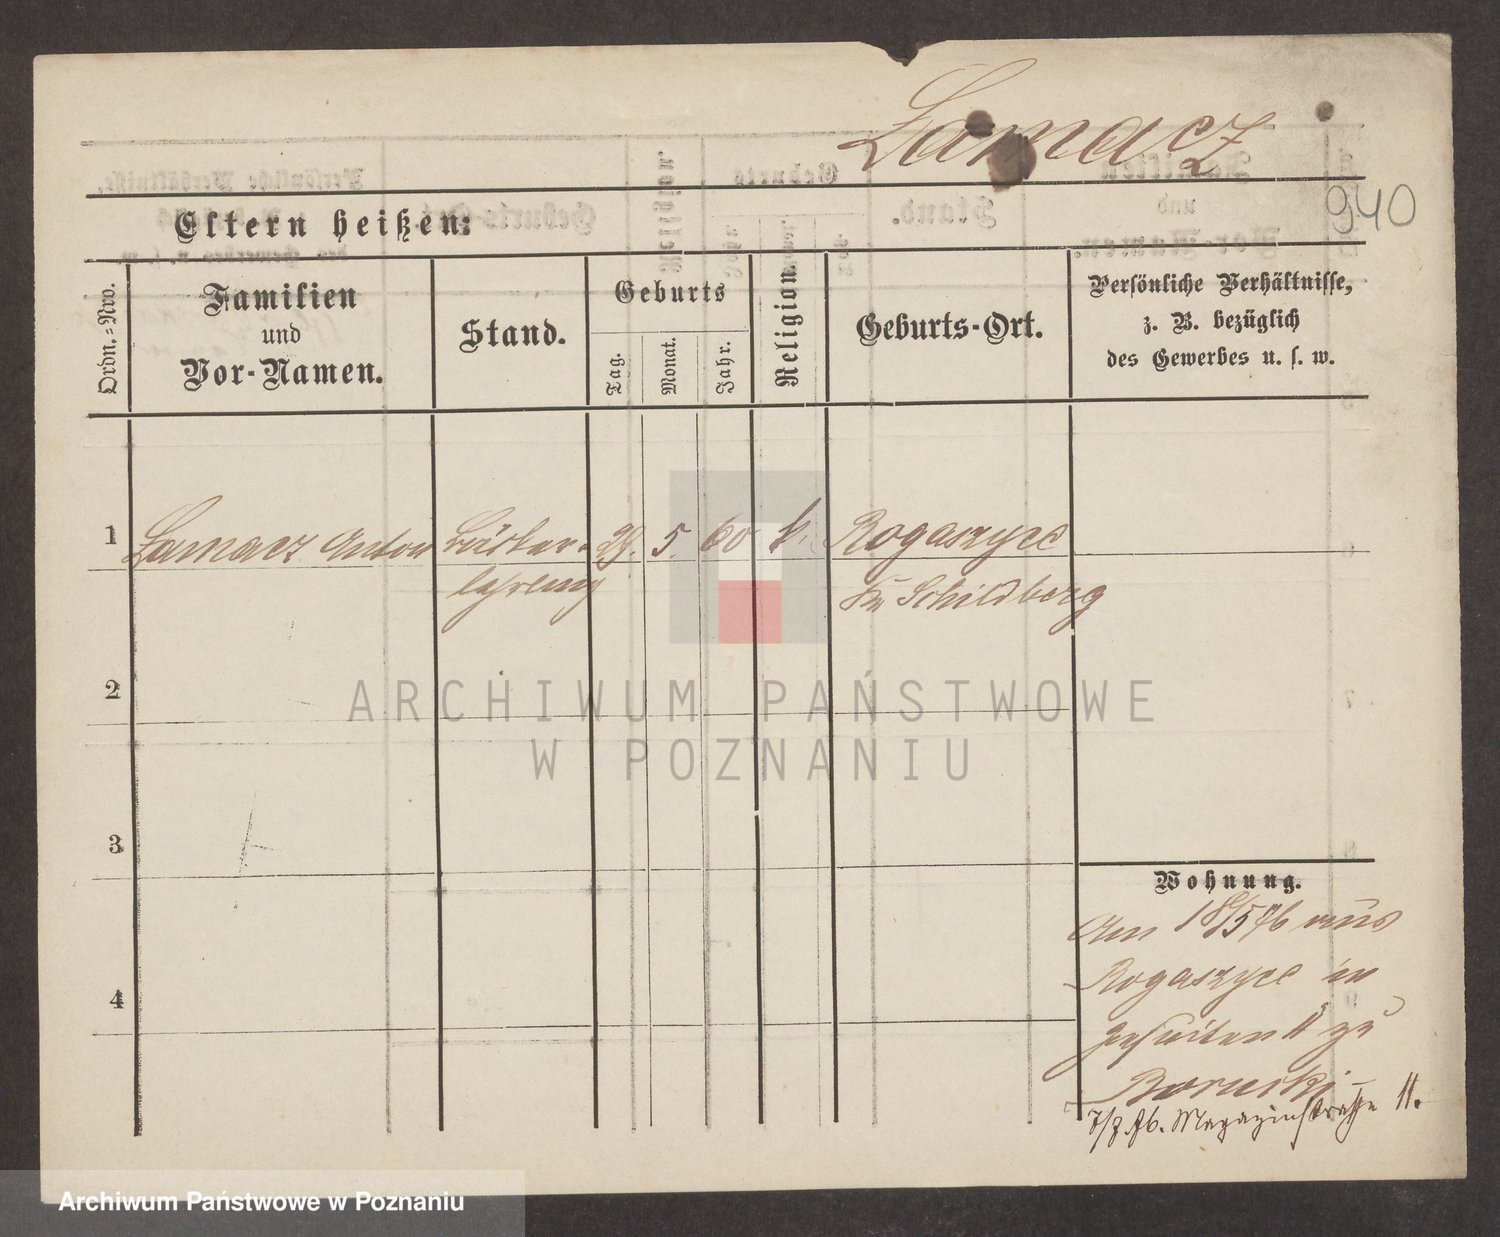 Lamacz
940
Eltern heißen:
Ordn.=Nro.
Familien
und
Vor-Namen.
Stand.
Geburts
Tag.
Monat.
Jahr.
Religion.
Geburts-Ort.
Persönliche Verhältnisse,
z. B. bezüglich
des Gewerbes u. s. w.
1 Lamacz Anton 5. 60 k. Rogaszyce
lehrling Kr Schildberg
2
ARCHIWUM PAŃSTWOWE
W POZNANIU
3
Wohnung.
Am 18/5 76 aus
Rogaszyce in
4
Jesuiten 11 zu
Boruski
Magazinstraße 11.
Archiwum Państwowe w Poznaniu